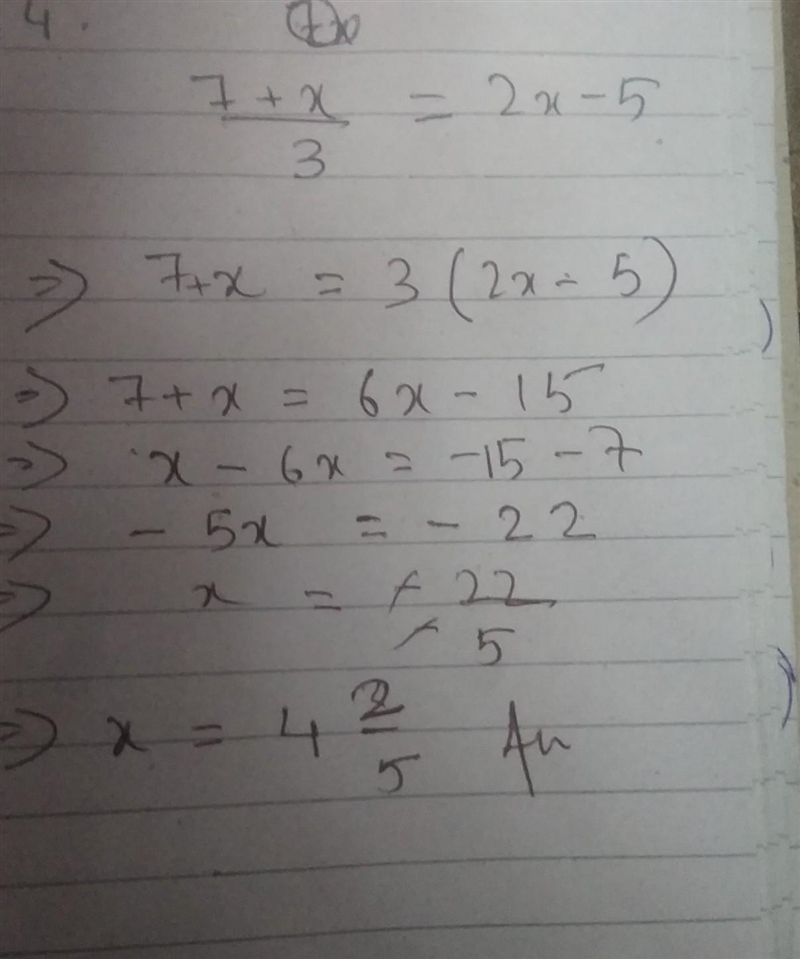 4.
7 + x / 3 = 2x - 5
⇒ 7 + x = 3 (2x - 5)
⇒ 7 + x = 6x - 15
⇒ x - 6x = -15 - 7
⇒ - 5x = - 22
⇒ x = - 22 / - 5
⇒ x = 4 2/5